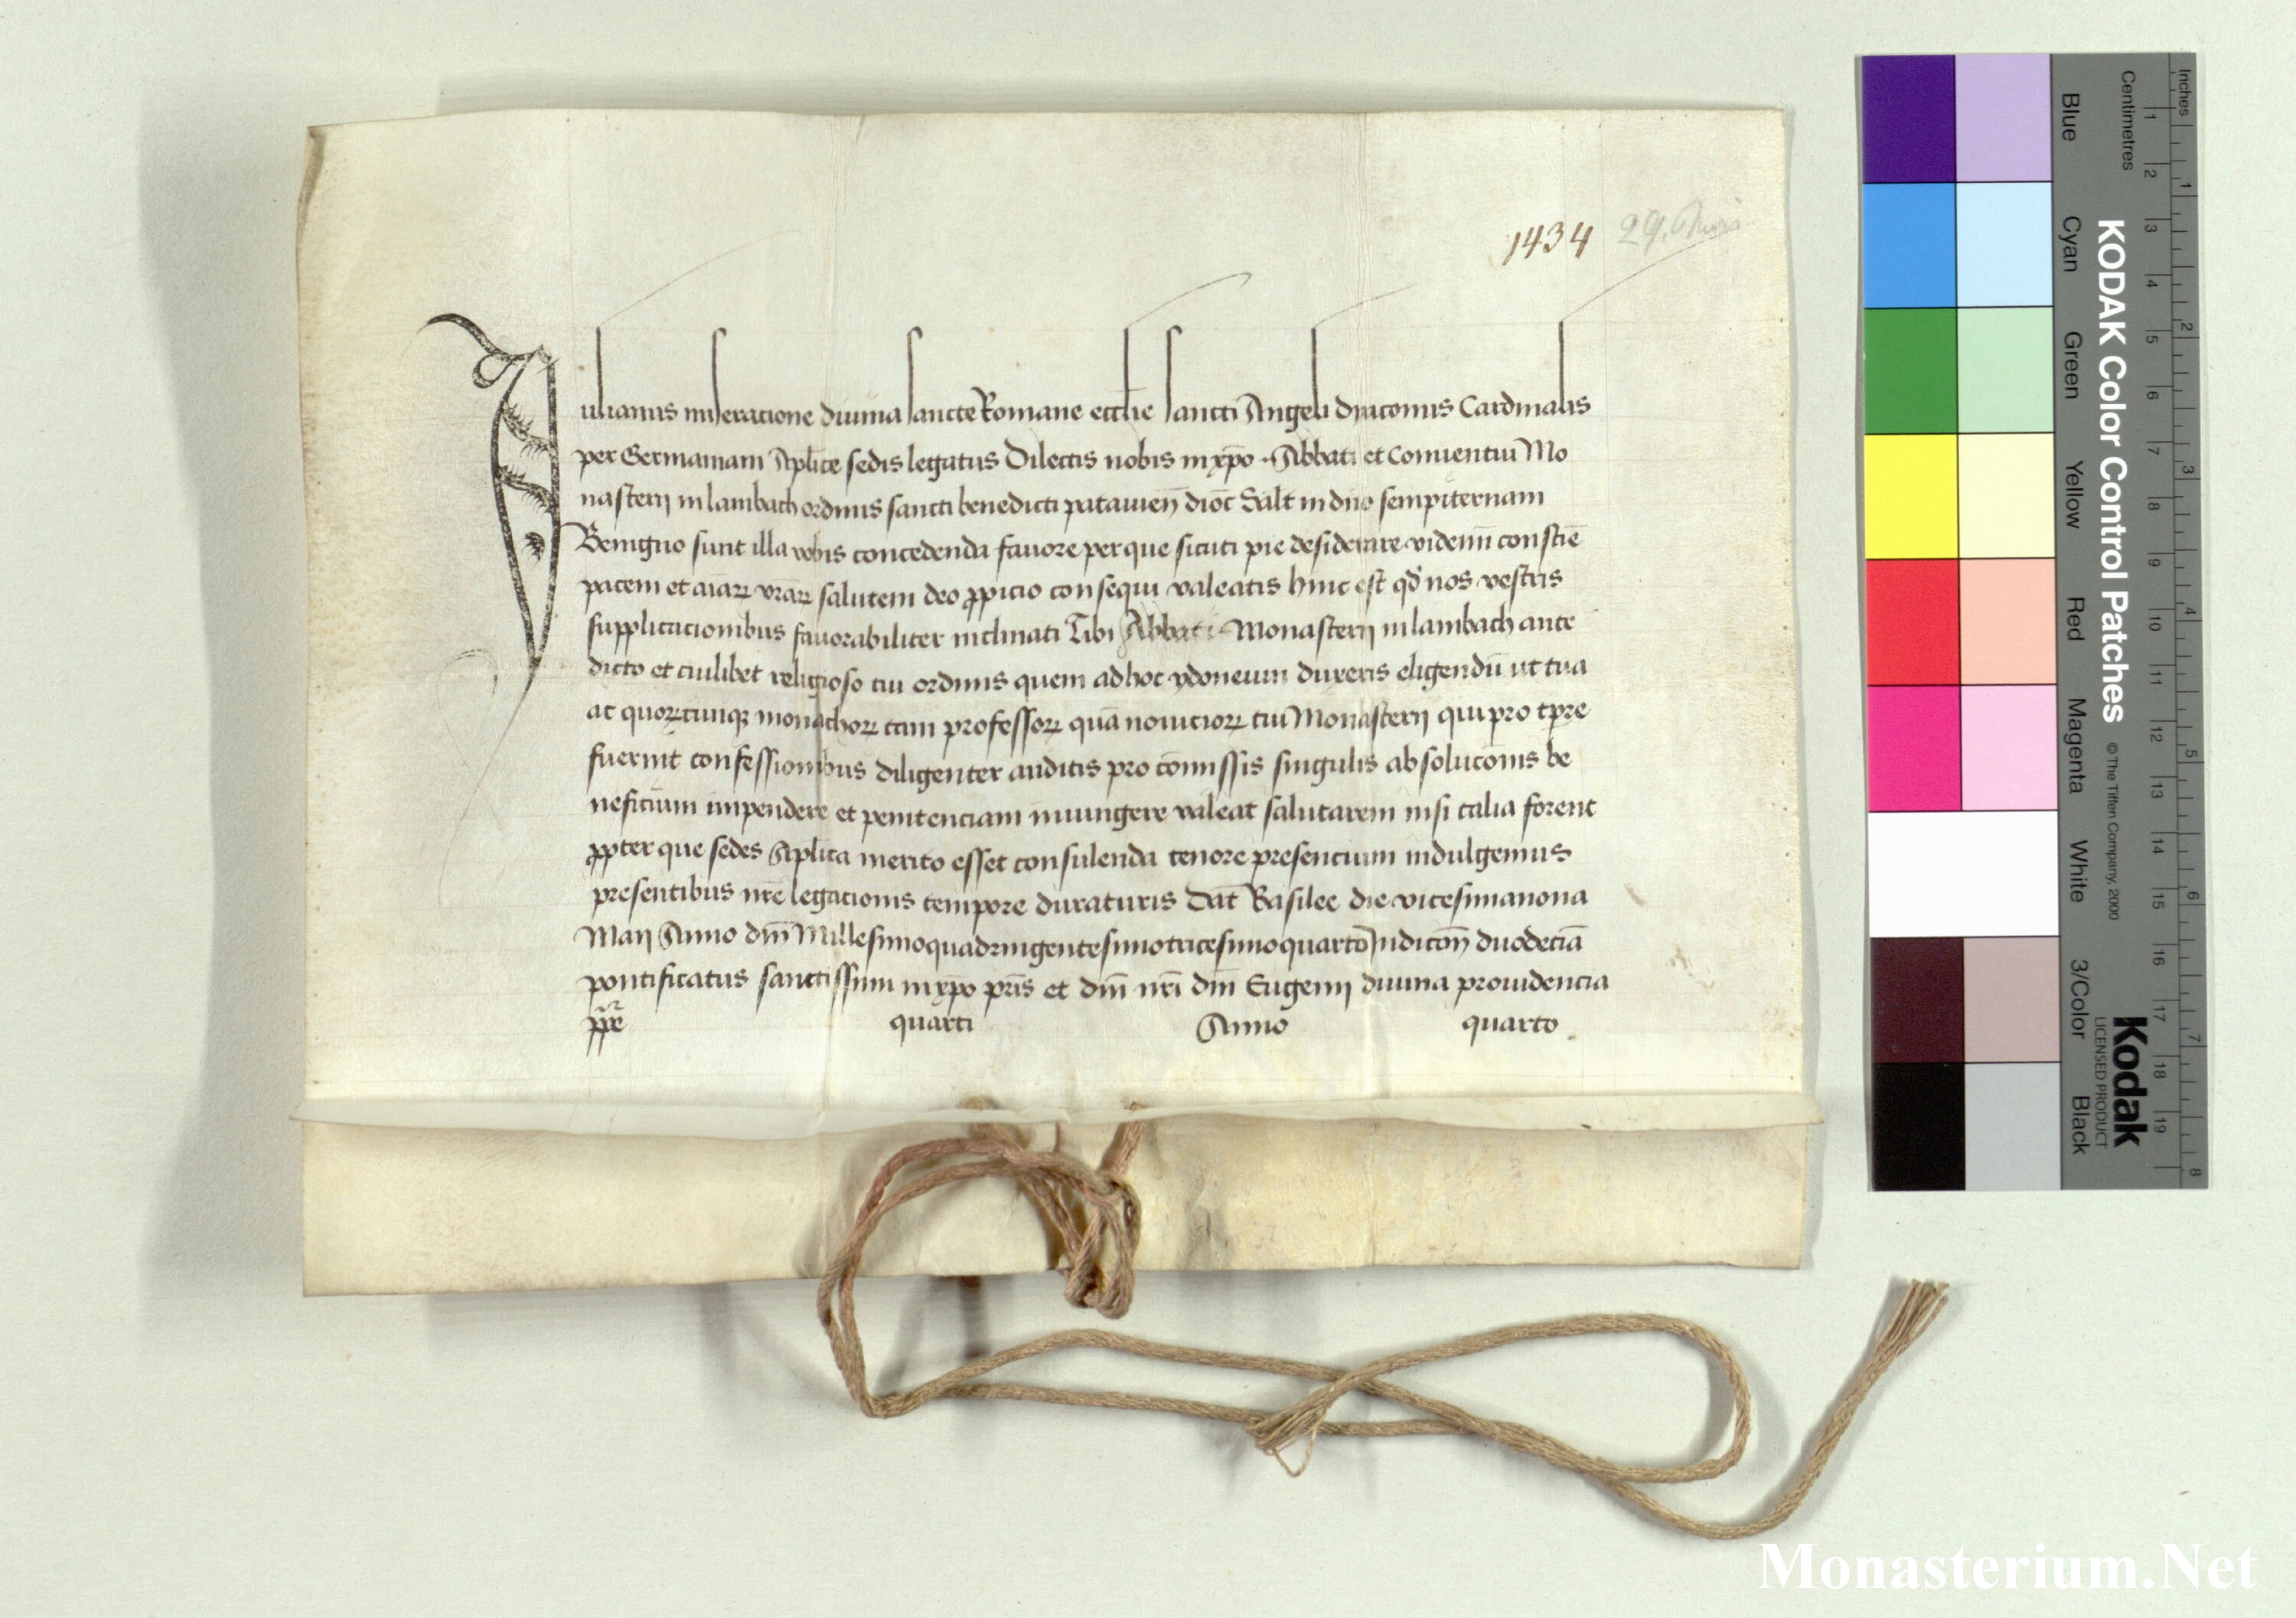 1434 29. Maii
Iulianus miseracione diuina sancte Romane eccl̄ie sancti Angeli diaconus Cardinalis
per Germaniam Aplice sedis legatus Dilectis nobis in xp̄o · Abbati et Conuentui Mo
nasterij in lambach ordinis sancti benedicti patauien̄ dioc̄ Salt̄ in dn̄o sempiternam
Benigno sunt illa vobis concedenda fauore per que sicuti pie desiderare videmī conscīe
pacem et aīaꝝ vr̄aꝝ salutem deo ꝓpicio consequi valeatis hinc est qd̄ nos vestris
supplicacionibus fauorabiliter inclinati Tibi Abbati Monasterij in lambach ante
dicto et cuilibet religioso tui ordinis quem ad hoc ydoneum duxeris eligendū ut tua
ac quoꝝcunqꝫ monachoꝝ tam professoꝝ quā nouicioꝝ tui Monasterij qui pro tp̄re
fuerint confessionibus diligenter auditis pro cōmissis singulis absolucōnis be
neficium impendere et penitenciam iniungere valeat salutarem nisi talia forent
ꝓpter que sedes Aplica merito esset consulenda tenore presencium indulgemus
presentibus nr̄e legacionis tempore duraturis Dat̄ Basilee die vicesimanona
Maij Anno dn̄i Millesimoquadringentesimotricesimoquarto Indicōn̄ duodecīa
pontificatus sanctissimi in xp̄o pr̄is et dn̄i nr̄i dn̄i Eugenij diuina prouidencia
pp̄e quarti Anno quarto
Inches
Centimetres
1 2 3 4 5 6 7 8
1 2 3 4 5 6 7 8 9 10 11 12 13 14 15 16 17 18 19
KODAK Color Control Patches © The Tiffen Company, 2000
Kodak
LICENSED PRODUCT
Blue Cyan Green Yellow Red Magenta White 3/Color Black
Monasterium.Net